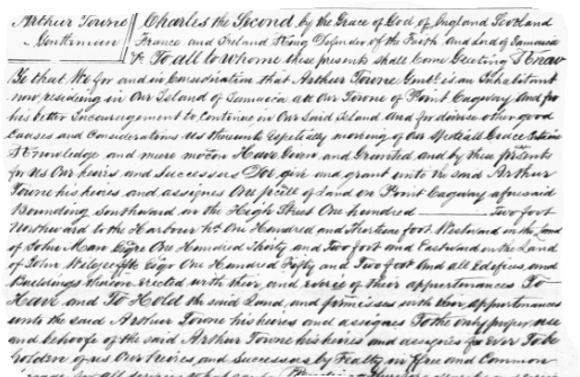 Arthur Towne
Gentleman
Charles the Second by the Grace of God of England Scotland
France and Ireland King Defender of the Faith and Lord of Jamaica
&c To all to whome these presents shall Come Greeting Know
Ye that We for and in Consideration that Arthur Towne Gent is an Inhabitant
now residing in Our Island of Jamaica att Our Towne of Point Cagway And for
his better Incouragement to Continue in Our Said Island And for diverse other good
Causes and Considerations Us thereunto Especially moveing of our Speciall Grace
Knowledge and meere mocon Have Given and Granted and by these presents
for Us Our heires and Successors Doe give and grant unto the said Arthur
Towne his heires and assignes One pcell of land on Point Cagway aforesaid
Bounding Southward on the High Street One hundred Two foot
Northward to the Harbour One Hundred and Thirteene foot Westward on the Land
of John Man Esqre One Hundred thirty and Two foot and Eastward on the Land
of John Esqr One Hundred Fifty and Two foot And all Edifices and
Buildings thereon erected with their and every of their appurtenances To
Have and To Hold the said Land and premisses with their appurtenances
unto the said Arthur Towne his heires and assignes To the only proper use
and behoofe of the said Arthur Towne his heires and assignes for Ever To be
holden of us Our heires and Successors by Fealty in ffree and Common
for all